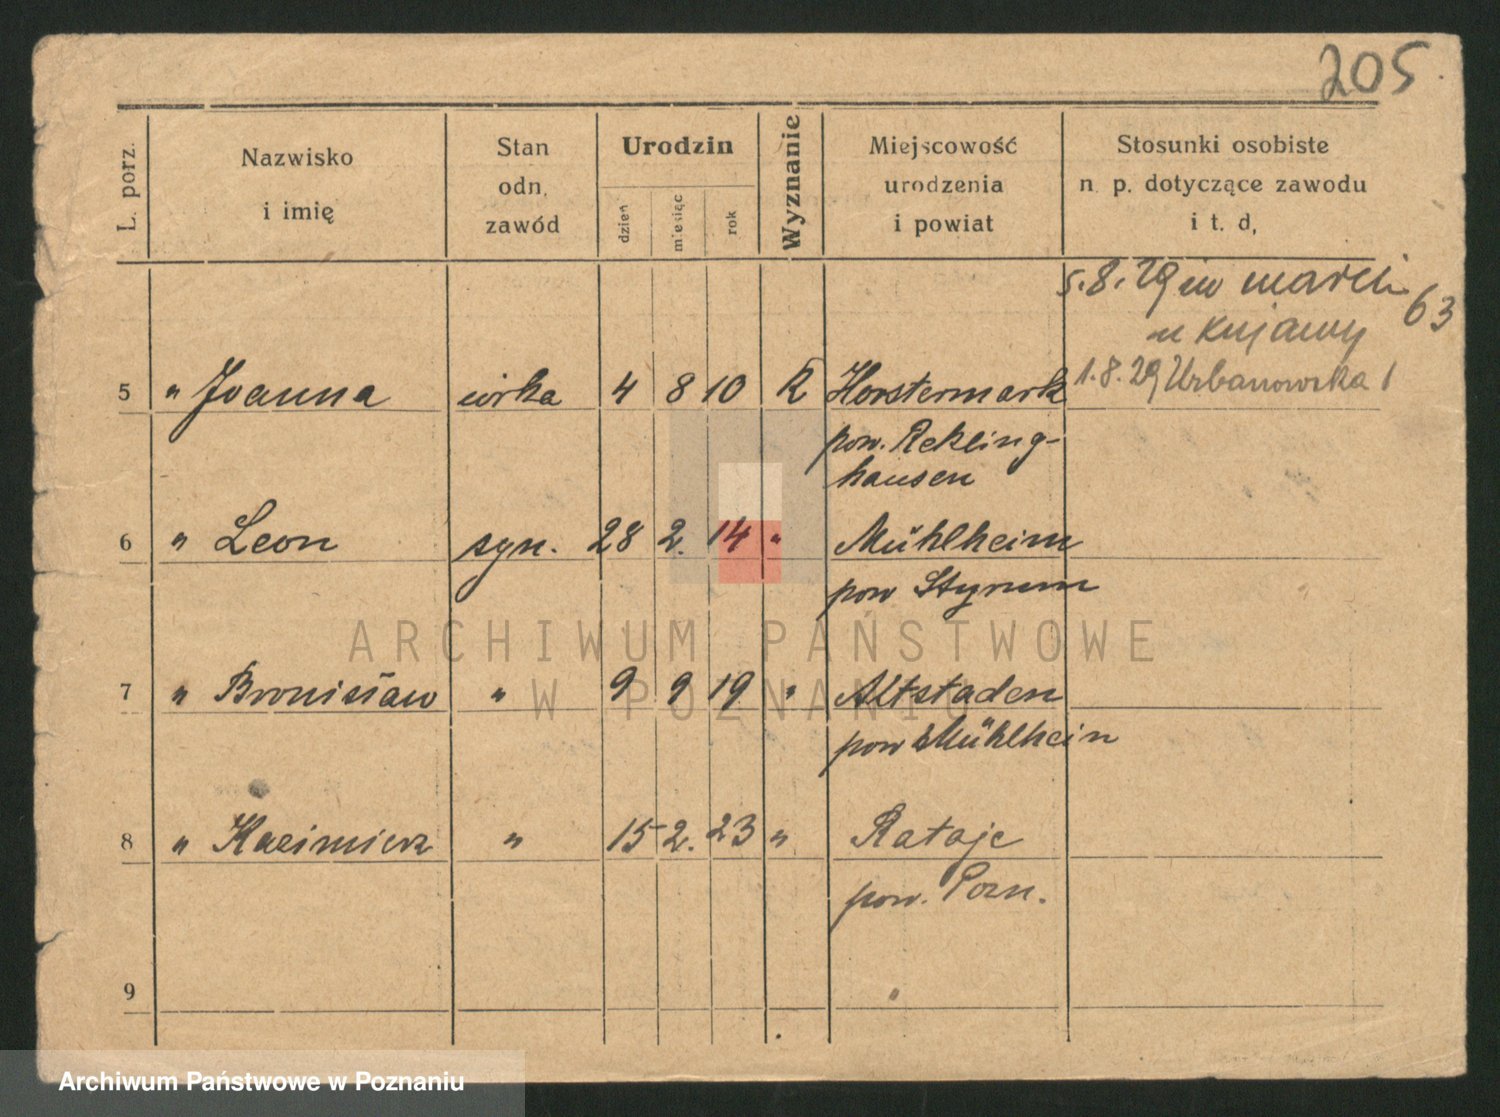 205
L. porz.
Nazwisko
i imię
Stan
odn.
zawód
Urodzin
dzień
miesiąc
rok
Wyznanie
Miejscowość
urodzenia
i powiat
Stosunki osobiste
n. p. dotyczące zawodu
i t. d,
5.8.29 św marcin
63
1.8.29 Urbanowska 1
5 " Joanna córka 4 8 10 K Horstermark
pow. Rekling-
hausen
6 " Leon syn. 28 2. 14 " Mühlheim
pow Styrum
7 " Bronisław " 9 9 19 " Altstaden
pow Mühlhein
8 " Kazimierz " 15 2. 23 " Rataje
pow. Pozn.
9
ARCHIWUM PAŃSTWOWE
W POZNANIU
Archiwum Państwowe w Poznaniu